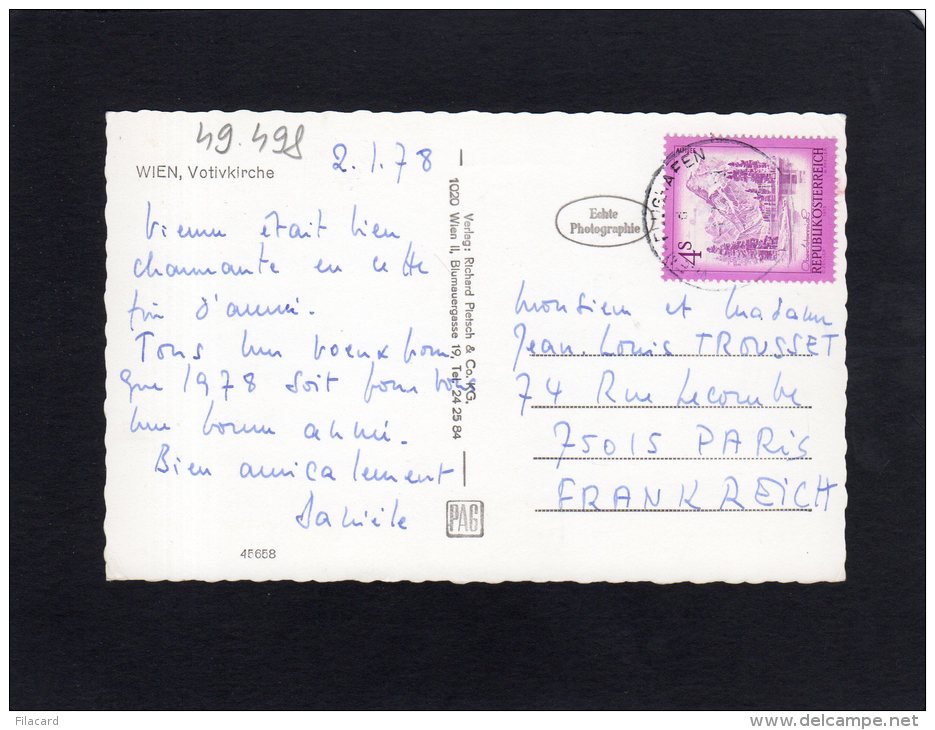 49.498
WIEN, Votivkirche
2.1.78
Vienne était bien
charmante en cette
fin d'année.
Tous mes voeux pour
que 1978 soit pour vous
une bonne année.
Bien amicalement
45658
Verlag: Richard Pietsch & Co. KG.
1020 Wien II, Blumauergasse 19, Tel. 24 25 84
PAG
Echte
Photographie
4S
REPUBLIK ÖSTERREICH
Monsieur et Madame
Jean-Louis TROUSSET
74 Rue Lecourbe
75015 PARIS
FRANKREICH
Filacard
www.delcampe.net